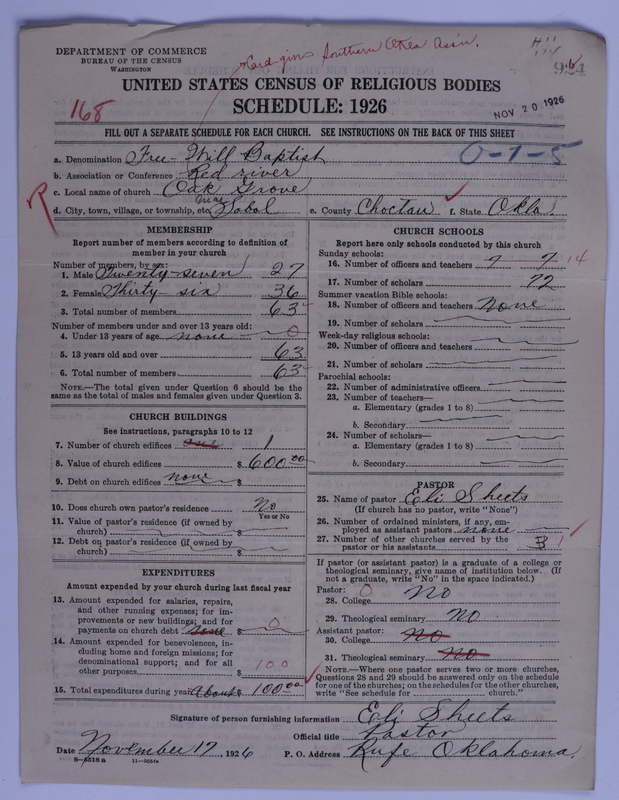 DEPARTMENT OF COMMERCE
BUREAU OF THE CENSUS
WASHINGTON
Southern Okla Ass'n.
UNITED STATES CENSUS OF RELIGIOUS BODIES
SCHEDULE: 1926
168
NOV 20 1926
FILL OUT A SEPARATE SCHEDULE FOR EACH CHURCH. SEE INSTRUCTIONS ON THE BACK OF THIS SHEET
a. Denomination Free-Will Baptist
0-7-5
b. Association or Conference Red river
c. Local name of church Oak Grove
d. City, town, village, or township, etc. near Sobol e. County Choctaw f. State Okla.
R
MEMBERSHIP
Report number of members according to definition of
member in your church
Number of members, by sex:
1. Male Twenty-seven 27
2. Female Thirty six 36
3. Total number of members 63
Number of members under and over 13 years old:
4. Under 13 years of age none 0
5. 13 years old and over 63
6. Total number of members 63
NOTE.—The total given under Question 6 should be the
same as the total of males and females given under Question 3.
CHURCH BUILDINGS
See instructions, paragraphs 10 to 12
7. Number of church edifices one 1
8. Value of church edifices $ 600 00
9. Debt on church edifices none $
10. Does church own pastor's residence No
Yes or No
11. Value of pastor's residence (if owned by
church) $
12. Debt on pastor's residence (if owned by
church) $
EXPENDITURES
Amount expended by your church during last fiscal year
13. Amount expended for salaries, repairs,
and other running expenses; for im-
provements or new buildings; and for
payments on church debt None $ 0
14. Amount expended for benevolences, in-
cluding home and foreign missions; for
denominational support; and for all
other purposes $ 100
15. Total expenditures during year About $ 100 00
CHURCH SCHOOLS
Report here only schools conducted by this church
Sunday schools:
16. Number of officers and teachers 7 7 14
17. Number of scholars 72
Summer vacation Bible schools:
18. Number of officers and teachers None
19. Number of scholars
Week-day religious schools:
20. Number of officers and teachers
21. Number of scholars
Parochial schools:
22. Number of administrative officers
23. Number of teachers—
a. Elementary (grades 1 to 8)
b. Secondary
24. Number of scholars—
a. Elementary (grades 1 to 8)
b. Secondary
PASTOR
25. Name of pastor Eli Sheets
(If church has no pastor, write "None")
26. Number of ordained ministers, if any, em-
ployed as assistant pastors none
27. Number of other churches served by the
pastor or his assistants 3
If pastor (or assistant pastor) is a graduate of a college or
theological seminary, give name of institution below. (If
not a graduate, write "No" in the space indicated.)
Pastor: 0
28. College No
29. Theological seminary No
Assistant pastor:
30. College No
31. Theological seminary No
NOTE.—Where one pastor serves two or more churches,
Questions 28 and 29 should be answered only on the schedule
for one of the churches; on the schedules for the other churches,
write "See schedule for church."
Signature of person furnishing information Eli Sheets
Official title Pastor
Date November 17, 1926 P. O. Address Rufe Oklahoma.
8-5518 a 11-9034a